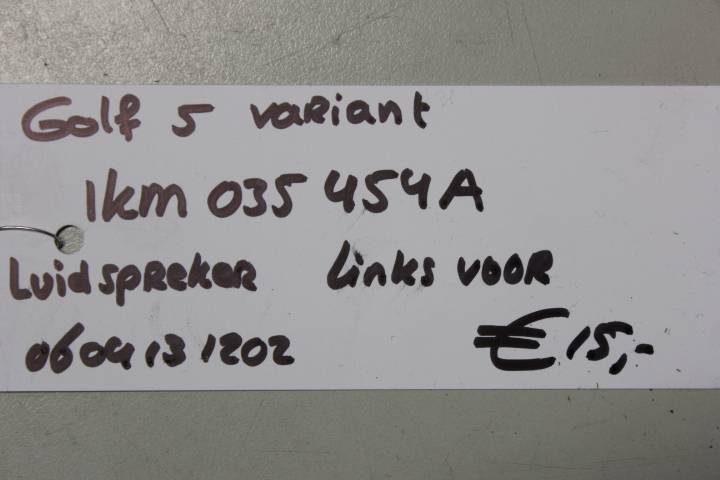 Golf 5 variant
1km 035 454A
Luidspreker Links voor
0604131202 €15,-